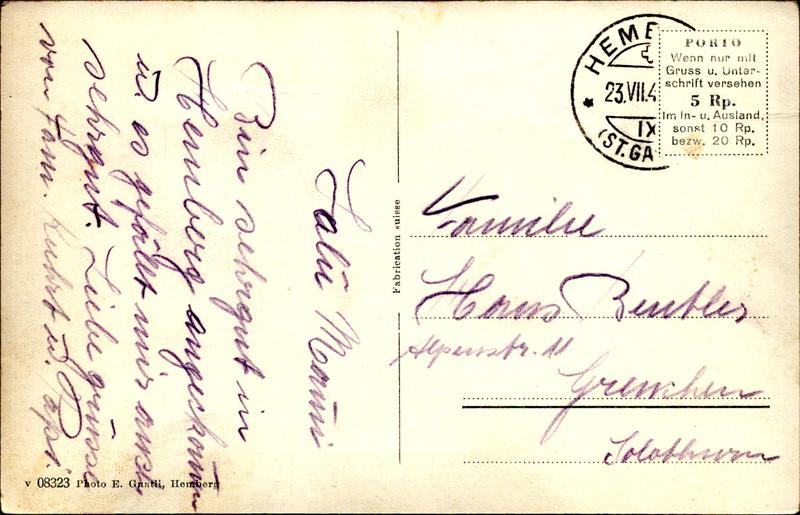 Salü Mami
Bin sehr gut in
Hemberg angekom̄en
u. es gefällt mir auch
sehr gut. Liebe Grüsse
von Fam. u. Papi.
Fabrication suisse
HEMBE
23.VII.4
IX
(ST.GA
PORTO
Wenn nur mit
Gruss u. Unter-
schrift versehen
5 Rp.
Im In- u. Ausland,
sonst 10 Rp.
bezw. 20 Rp.
Familie
Hans
Alpenstr. 11
Grenchen
Solothurn
v 08323 Photo E. Gnatli, Hemberg